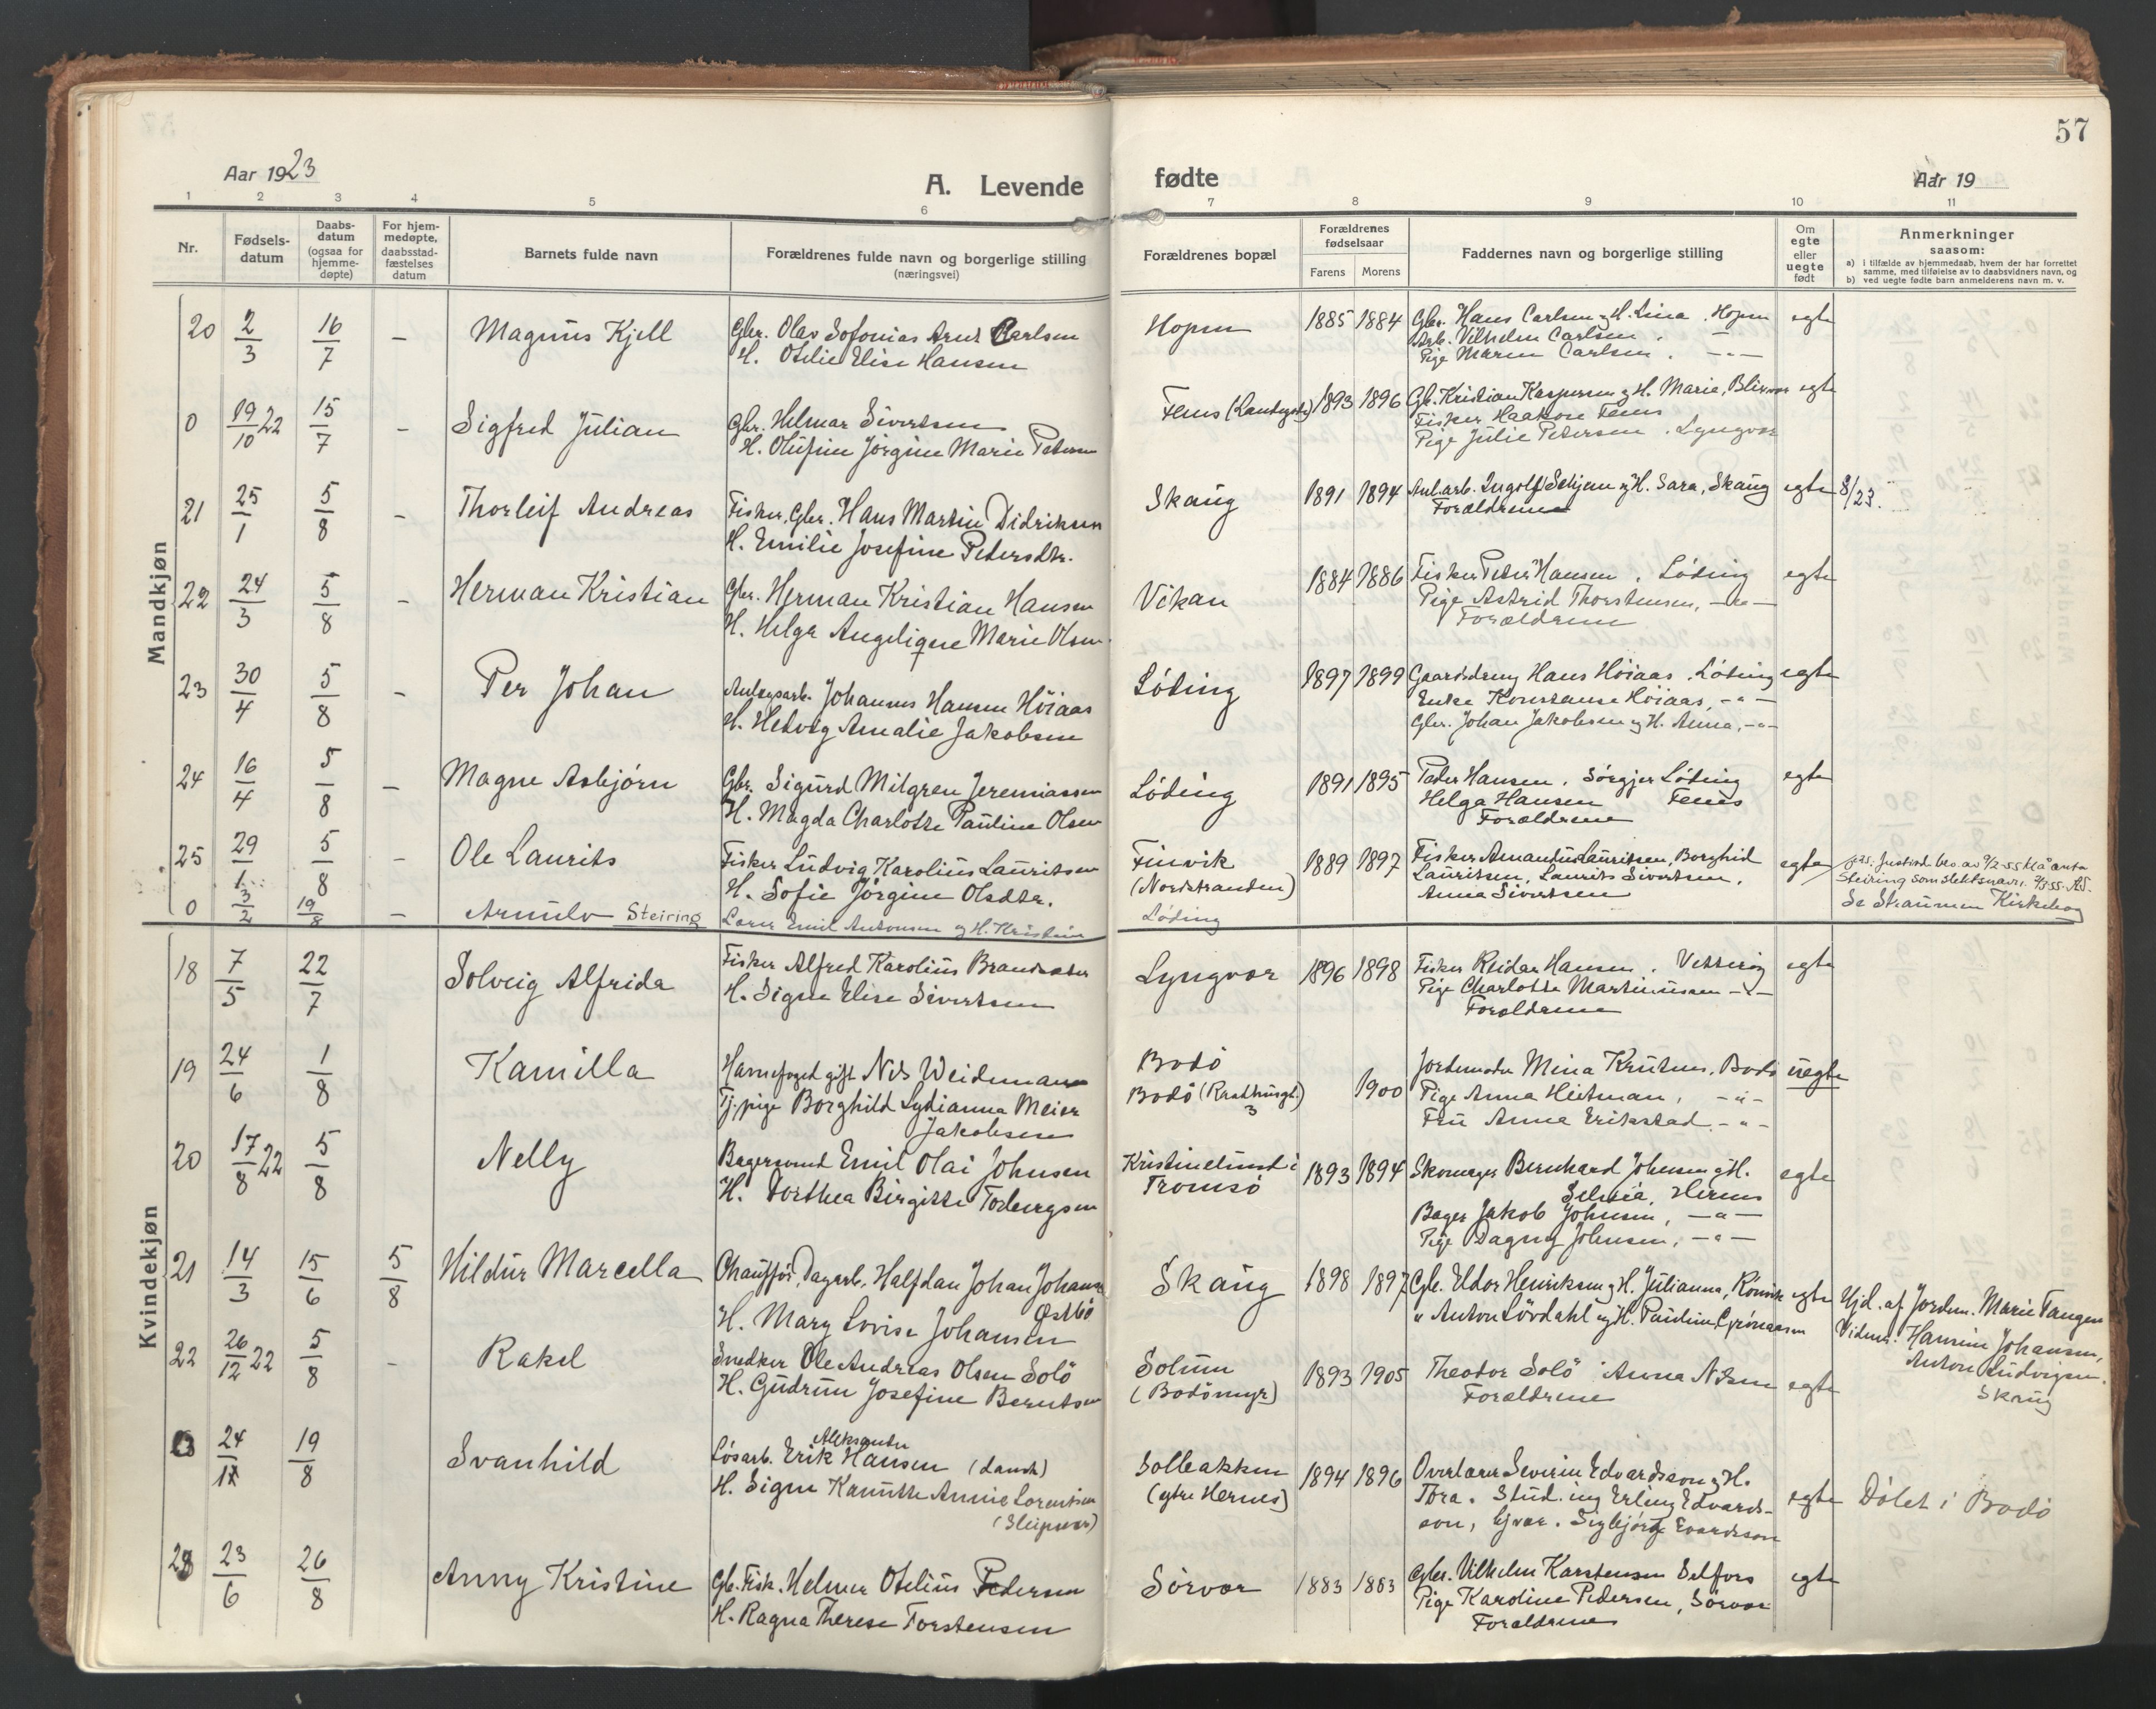 57
Aar 1923
A. Levende fødte
Aar 19
1 2 3 4 5 6 7 8 9 10 11
Nr.
Fødsels-
datum
Daabs-
datum
(ogsaa for
hjemme-
døpte)
For hjem-
medøpte,
daabsstad-
fæstelses
datum
Barnets fulde navn
Forældrenes fulde navn og borgerlige stilling
(næringsvei)
Forældrenes bopæl
Forældrenes
fødselsaar
Farens Morens
Faddernes navn og borgerlige stilling
Om
egte
eller
uegte
født
Anmerkninger
saasom:
a) i tilfælde av hjemmedaab, hvem der har forrettet
samme, med tilføielse av to daabsvidners navn, og
b) ved uegte fødte barn anmelderens navn m. v.
Mandkjøn
20 2/3 16/7 – Magnus Kjell
Gbr. Olav Sofonias Arnt Carlsen
H. Otelie Elise Hansen
Hopen 1885 1884
Gbr. Hans Carlsen og H. Lina, Hopen
Arb. Vilhelm Carlsen, —
Pige Maren Carlsen, —"—
egte
0 19/10 22 15/7 – Sigfred Julian
Gbr. Helmar Sivertsen
H. Olufine Jørgine Marie Petersen
Fenes (Landegode) 1893 1896
Gb. Kristian Kaspersen og H. Marie, Blixvær
Fisker Haakon Fenes
Pige Julie Petersen, Lyngvær
egte
21 25/1 5/8 – Thorleif Andreas
Fisker, Gbr. Hans Martin Didriksen
H. Emilie Josefine Petersdtr.
Skaug 1891 1894
Anl.arb. Ingolf Schjem og H. Sara, Skaug
Forældrene
egte 8/23.
22 24/3 5/8 – Herman Kristian
Gbr. Herman Kristian Hansen
H. Helga Angelique Marie Olsen
Vikan 1884 1886
Fisker Peter Hansen, Løding
Pige Astrid Thorstensen, —"—
Forældrene
egte
23 30/4 5/8 – Per Johan
Anlegsarb. Johannes Hansen Höiaas
H. Hedvig Amalie Jakobsen
Løding 1897 1899
Gaardsdreng Hans Höiaas, Løding
Enke Konstanse Höiaas, —"—
Gbr. Johan Jakobsen og H. Anna, —"—
egte
24 16/4 5/8 – Magne Asbjørn
Gbr. Sigurd Milgren Jeremiassen
H. Magda Charlotte Pauline Olsen
Løding 1891 1895
Peder Hansen, Sørgjer Løding
Helga Hansen Fenes
Forældrene
egte
25 29/1 5/8 – Ole Laurits
Fisker Ludvig Karolius Lauritsen
H. Sofie Jørgine Olsdtr.
Finvik
(Nordstranden)
1889 1897
Fisker Amandus Lauritsen, Borghild
Lauritsen, Laurits Sivertsen,
Anna Sivertsen
egte
Steiring som slektsnavn.
0 3/2 19/8 – Arnulv Steiring
Lærer Emil Antonsen og H. Kristine
Løding
Se Straumen Kirkebog
Kvindekjøn
18 7/5 22/7 Solveig Alfrida
Fisker Alfred Karolius Brandsæter
H. Signe Elise Sivertsen
Lyngvær 1896 1898
Fisker Reidar Hansen,
Pige Charlotte Martinussen —"—
Forældrene
egte
19 24/6 1/8 Kamilla
Havnefoged gift Nils Weidemann
Tj.pige Borghild Lydianna Meier
Jakobsen
Bodø
Bodø (Raadhusgt.)
3
1900
Jordemoder Mina Knutsen, Bodø
Pige Anna Heitman, —"—
Fru Anna Erikstad, —"—
uegte
20 17/8 22 5/8 Nelly
Bagersvend Emil Olai Johnsen
H. Dorthea Birgitte Torbergsen
Kristinelund i
Tromsø
1893 1894
Skomager Bernhard Johnsen og H.
Selvia, Hernes
Bager Jakob Johnsen, —"—
Pige Dagny Johnsen, —"—
egte
21 14/3 15/6 5/8 Hildur Marcella
Chauffør, Dagarb. Halfdan Johan Johansen
Østbö
H. Mary Lovise Johansen
Skaug 1898 1897
Gbr. Eldor Henriksen og H. Julianna, Rønvik
" Anton Løvdahl og H. Pauline, Grønaasen
egte
Hjd. af Jordem. Marie Tangen
Vidner: Hansine Johansen,
Anton Ludvigsen,
Skaug
22 26/12 22 5/8 – Rakel
Snedker Ole Andreas Olsen Solö
H. Gudrun Josefine Berntsen
Solum
(Bodømyr)
1893 1905
Theodor Solö Anna Nilsen
Forældrene
egte
0 24/12 19/8 Svanhild
Aleksander
Løsarb. Erik Hansen (dansk)
H. Signe Kanutte Annie Lorentsen
(Sleipnær)
Solbakken
(ytre Hernes)
1894 1896
Overlærer Severin Edvardsson og H.
Tora. Stud. ing Erling Edvards-
son, Sigbjørg Evardsson
egte Døbt i Bodø
23 23/6 26/8 Anny Kristine
Gb. Fisk. Helmer Otelius Pedersen
H. Ragna Therese Torstensen
Sørvær 1883 1883
Gbr. Vilhelm Karstensen Selfors
Pige Karoline Pedersen, Sørvær
Forældrene
egte